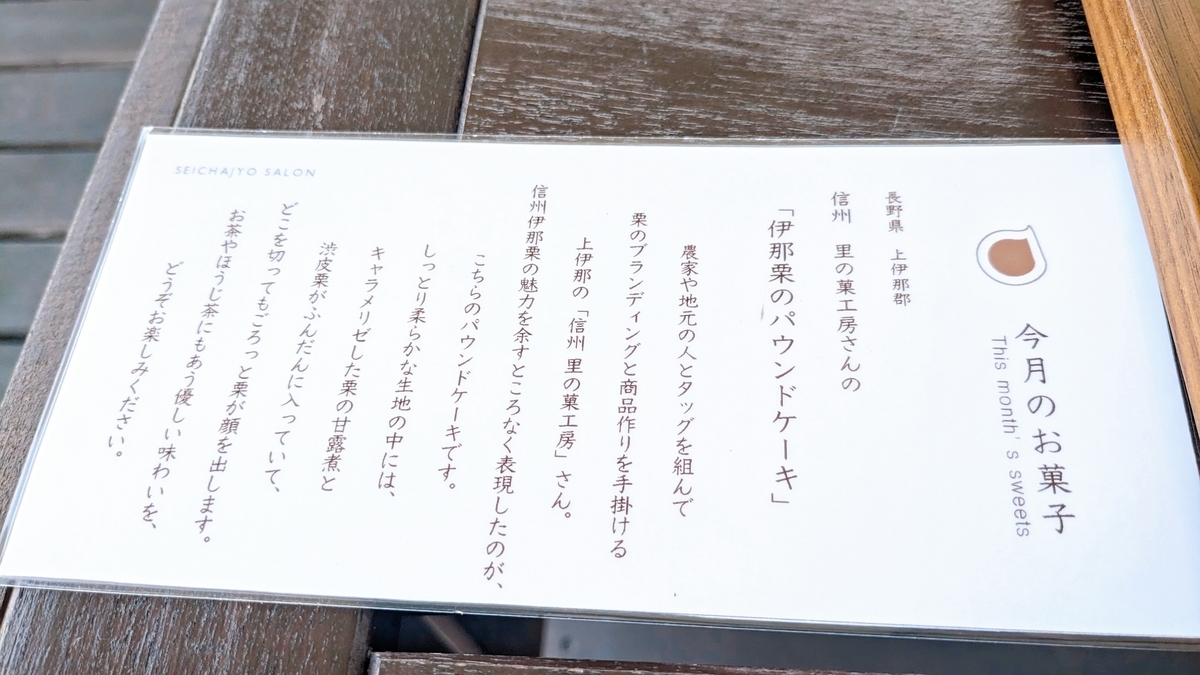 今月のお菓子
This month's sweets
長野県 上伊那郡
信州 里の菓工房さんの
「伊那栗のパウンドケーキ」
農家や地元の人とタッグを組んで
栗のブランディングと商品作りを手掛ける
上伊那の「信州 里の菓工房」さん。
信州伊那栗の魅力を余すところなく表現したのが、
こちらのパウンドケーキです。
しっとり柔らかな生地の中には、
キャラメリゼした栗の甘露煮と
渋皮栗がふんだんに入っていて、
どこを切ってもごろっと栗が顔を出します。
お茶やほうじ茶にもあう優しい味わいを、
どうぞお楽しみください。
SEICHAJYO SALON